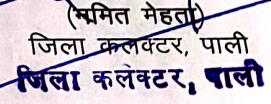 (नमित मेहता)
जिला कलक्टर, पाली
जिला कलंक्टर, पाली